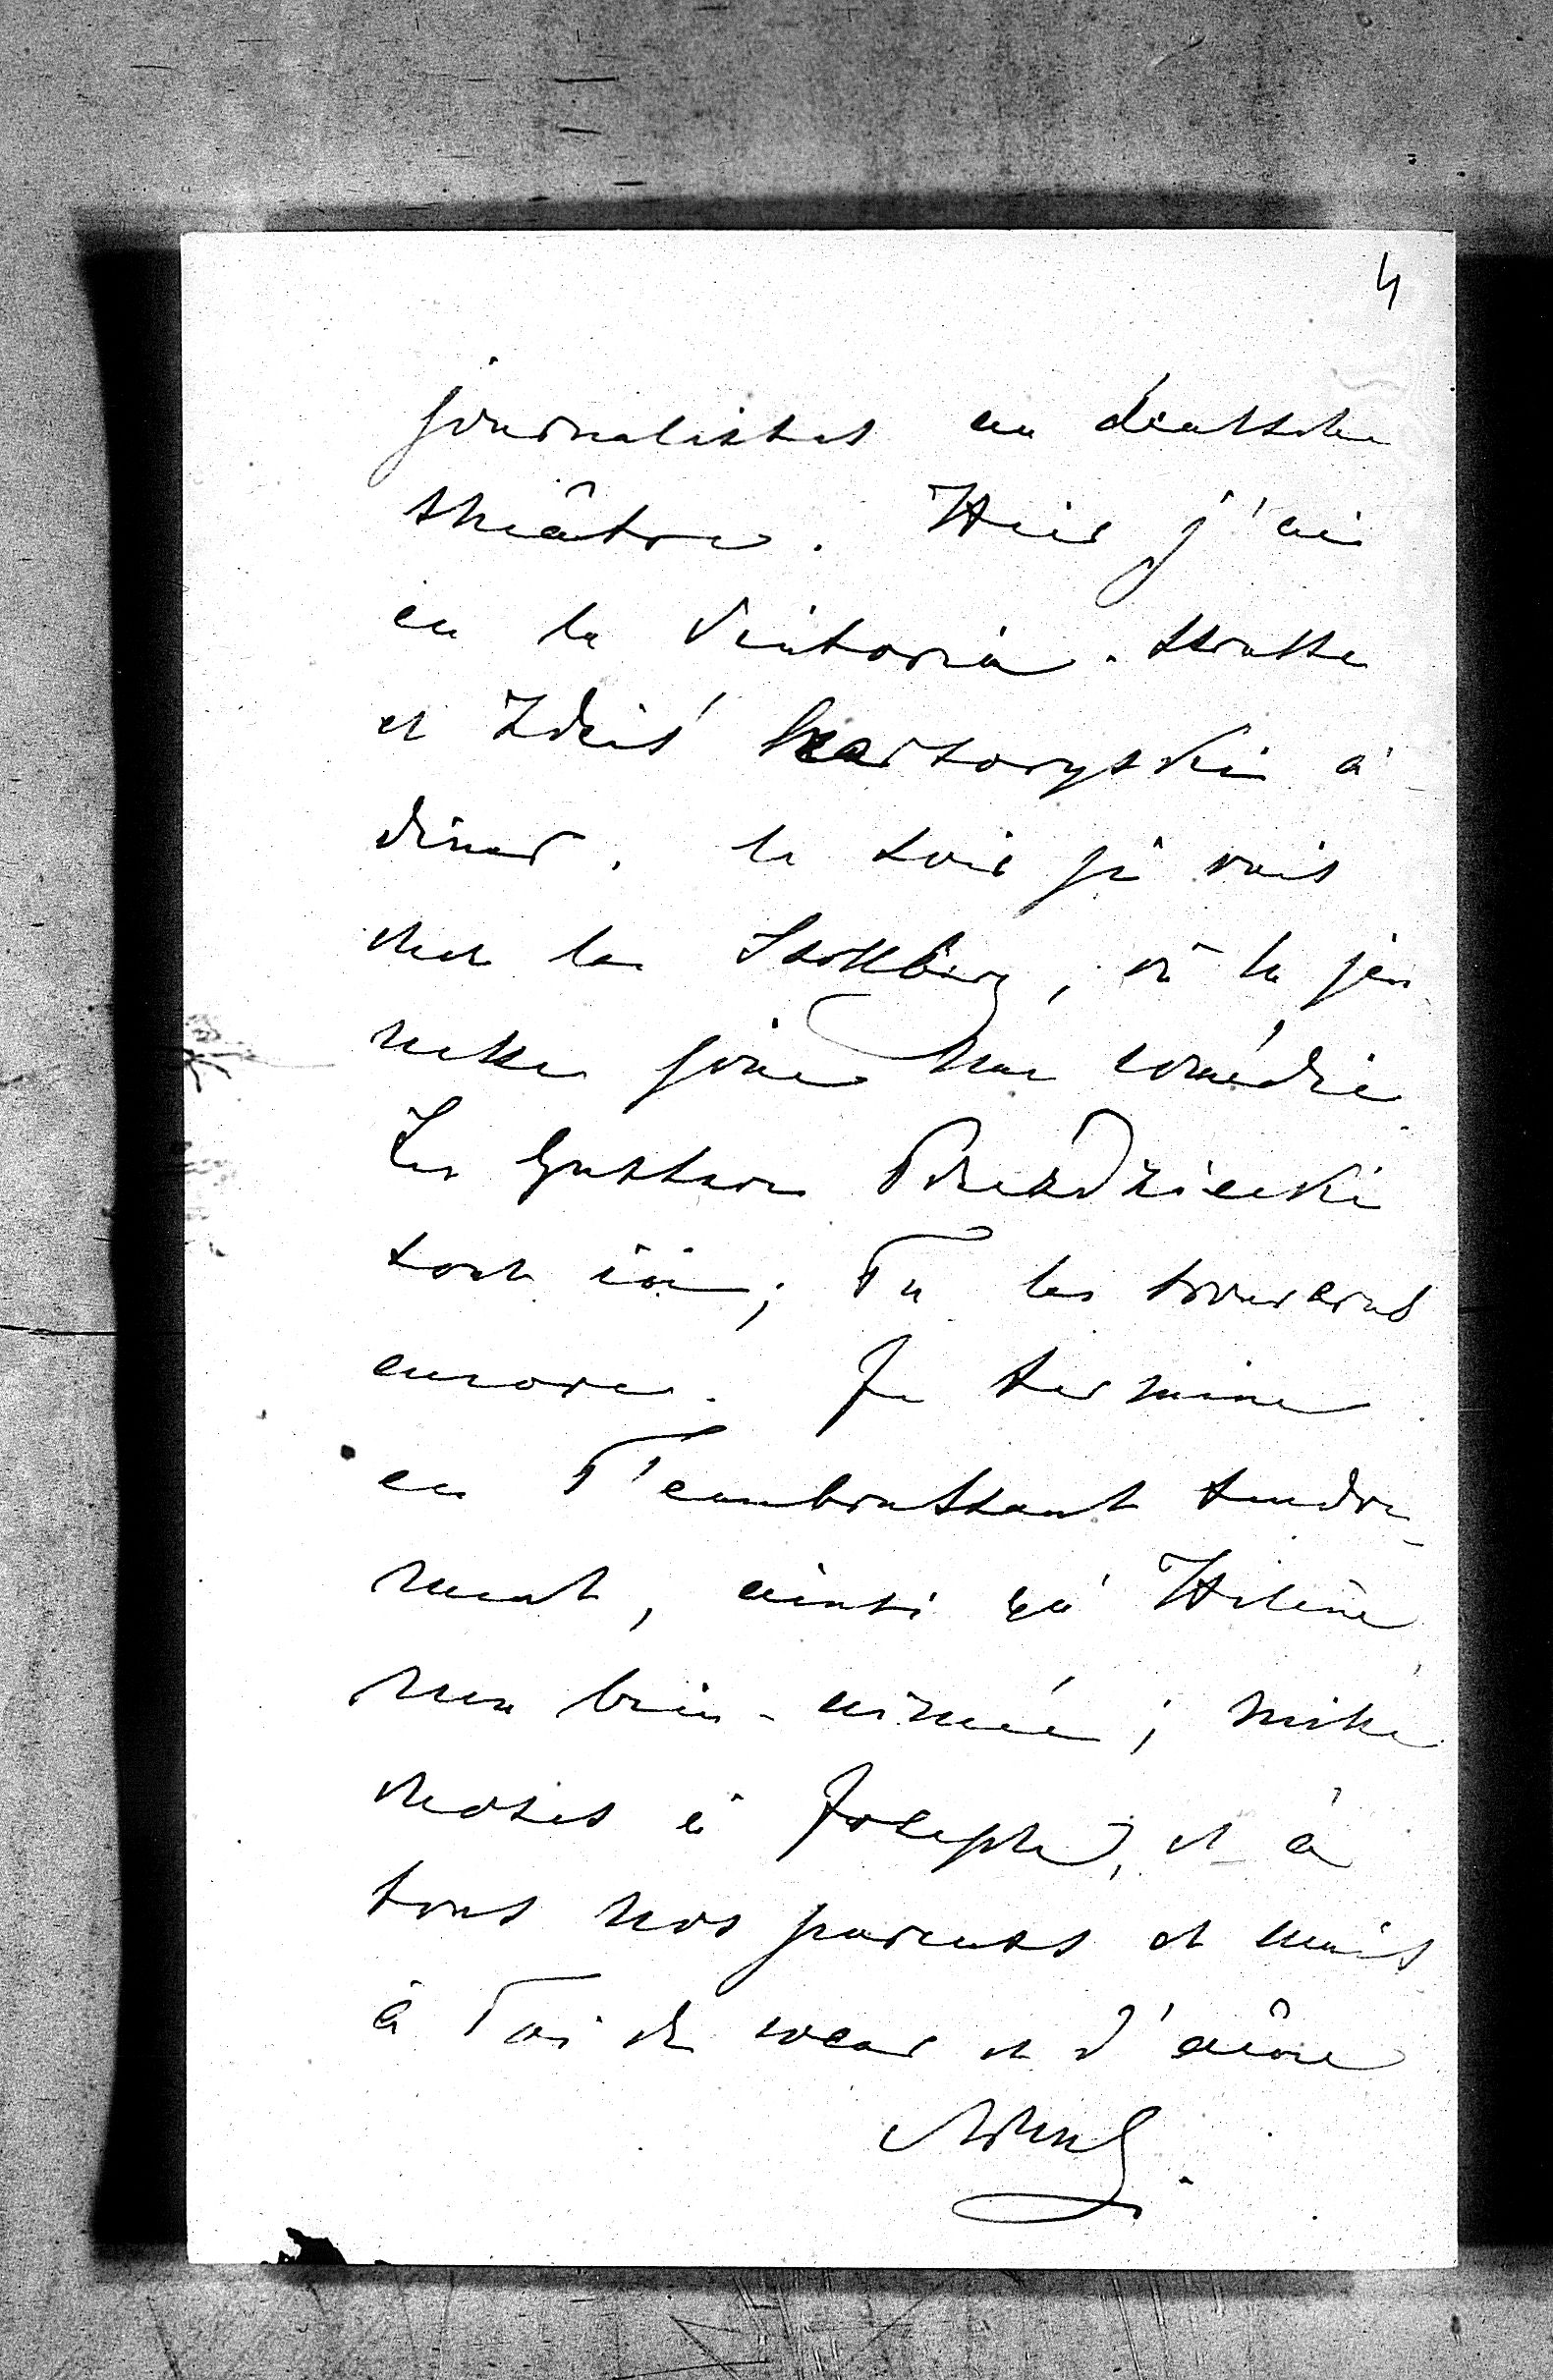 4
journalistes au deutsche
théâtre. Hier j'ai
eu la Victoria-strasse
et Zdziś Czartoryski à
dîner. le soir je vais
chez les Stollberg, où la jeu
nesse joue une comédie.
Les Gustave Przezdziecki
sont ici; Tu les trouveras
encore. Je termine
en T'embrassant tendre-
ment, ainsi qu'Hélène
ma bien-aimée; mille
choses à Joseph, et à
tous nos parents et amis
à Toi de coeur et d'âme